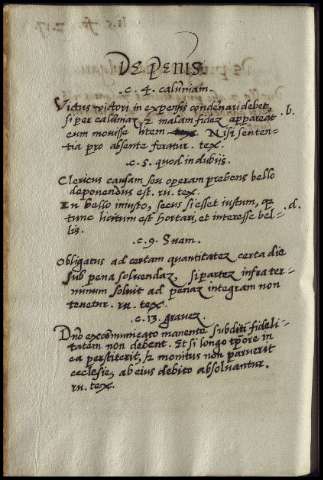 De penis
.c. 4. calumniam.
Victus victori in expensis condēnari debet, .b.
si per calumniaz, et malam fidez appareat
eum mouisse litem. Nisi senten-
tia pro absente feratur. tex.
.c. 5. quod in dubiis.
Clericus causam seu operam prebens bello
deponendus est. ru. tex.
In bello iniusto, secus si esset iustum, q. .d.
tunc licitum est hortari, et interesse bel-
lis.
.c. 9. Suam.
Obligatus ad certam quantitatez certa die
sub pena soluendaz, si partez infra ter-
minum soluit ad penaz integram non
tenetur. ru. tex.
.c. 13. grauez.
Dn̄o excommunicato manente subditi fideli-
tatem non debent. Et si longo tp̄ore in
ea perstiterit, et monitus non paruerit
ecclesie, ab eius debito absoluantur.
ru. tex.